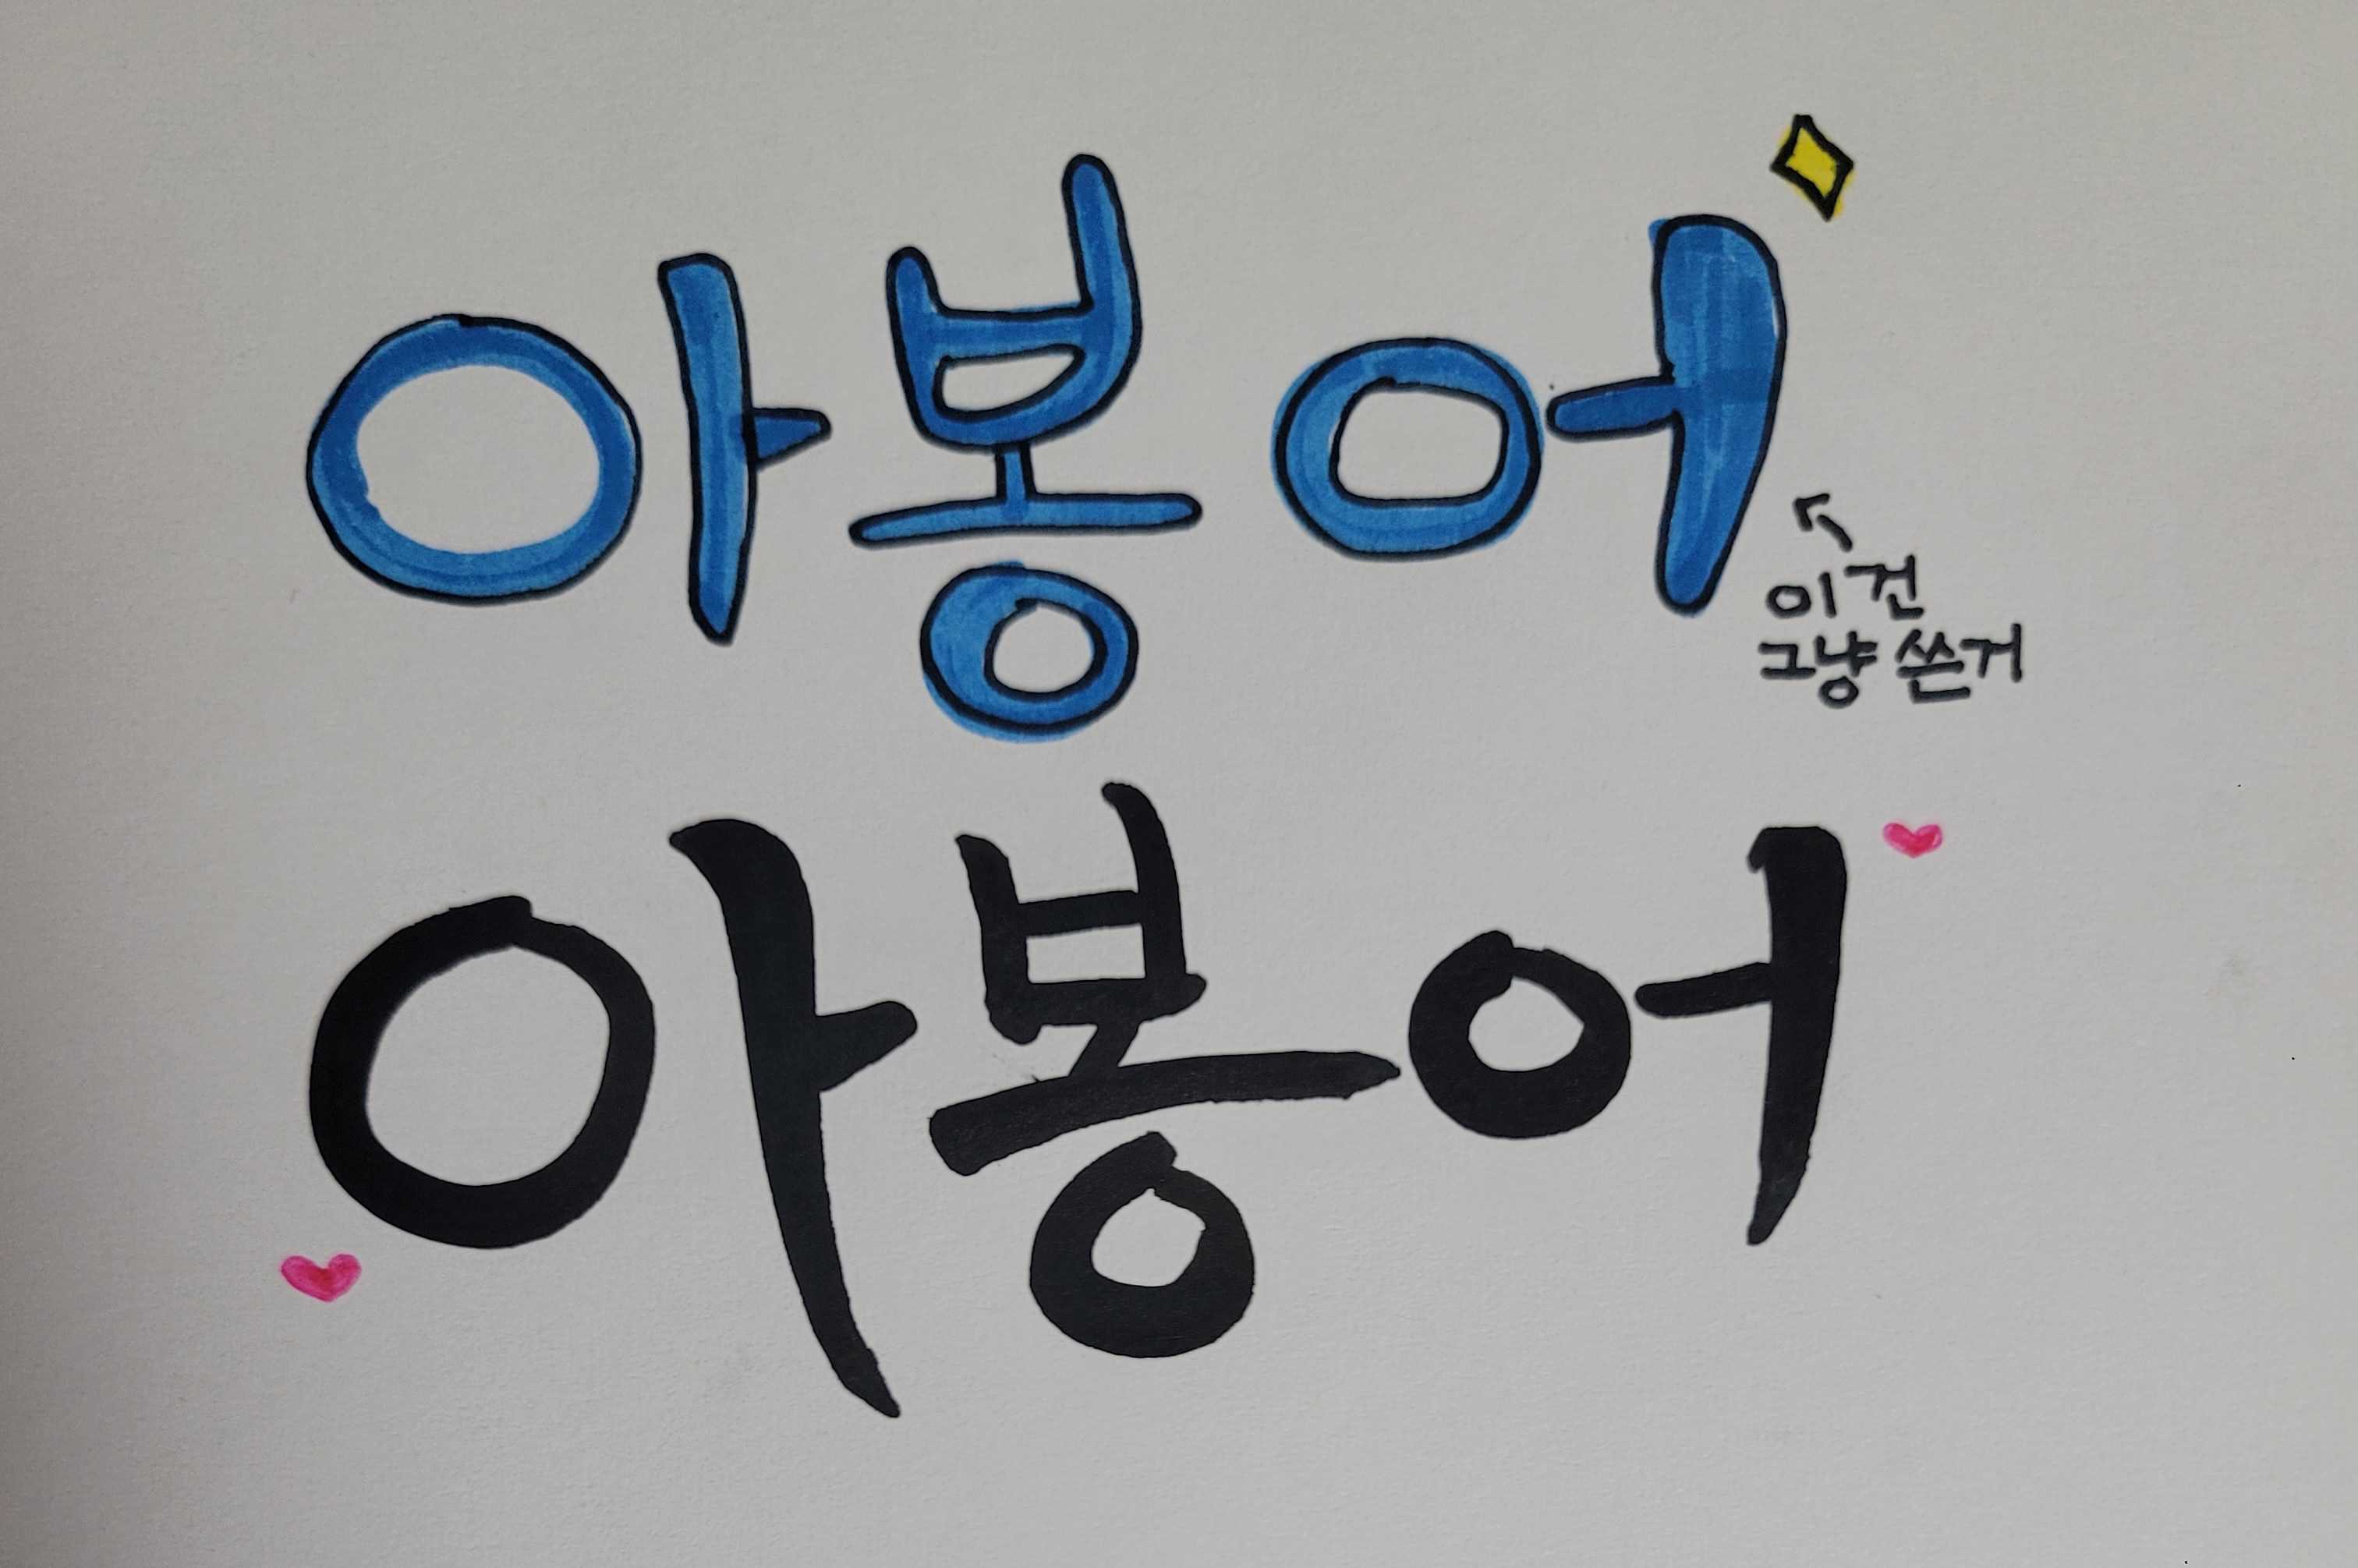 아봉어
이건
그냥 쓴거
아봉어